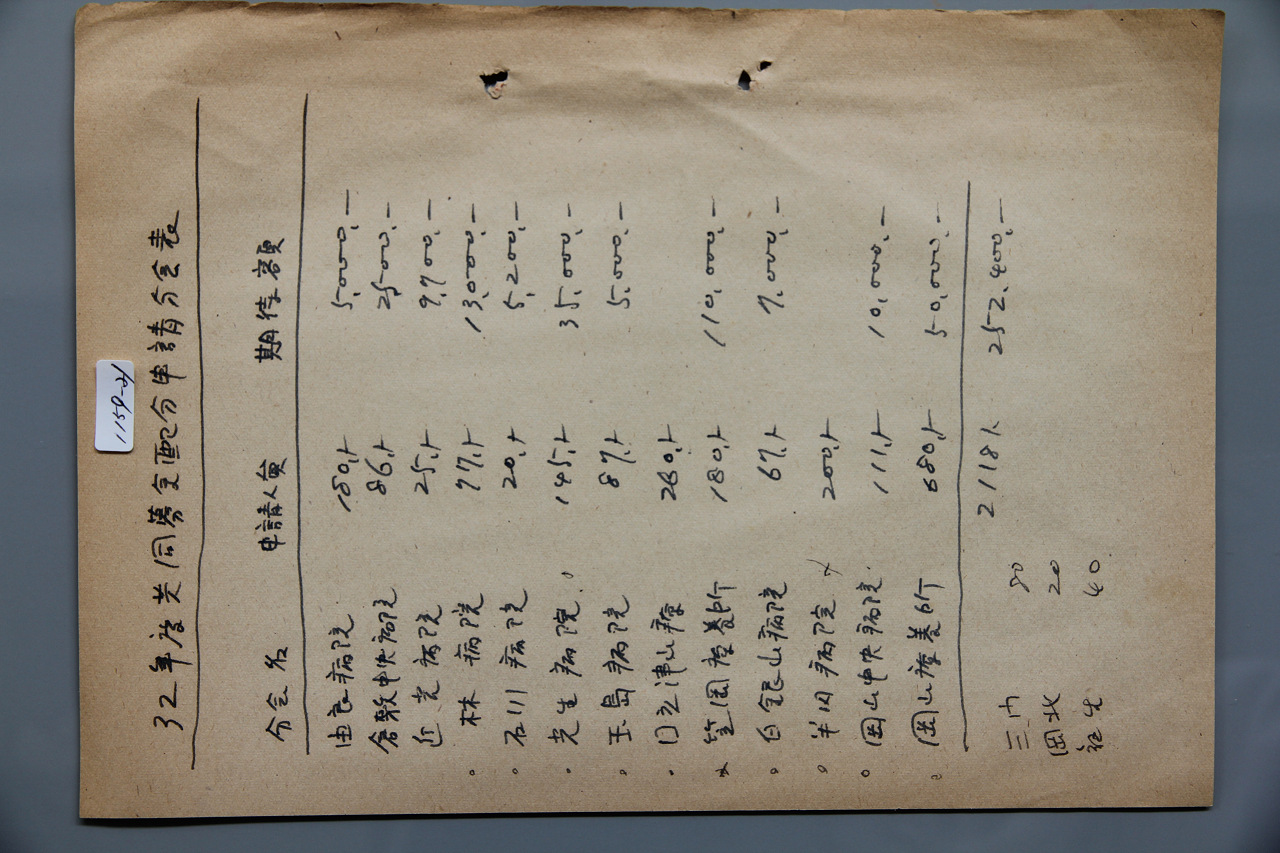 1159-21
32年度共同募金配分申請分会表
分会名 申請人員 期待額
由良病院 180人 5,000.—
倉敷中央病院 86人 25,000.—
近光病院 25人 9,700.—
。林病院 77人 13,000.—
。石川病院 20人 5,200.—
。光生病院 145人 35,000.—
。玉島病院 87人 5,000.—
。日立津山療 260人
× 笠岡療養所 180人 110,000.—
。白銀山病院 67人 7,000.—
。病院 × 200人
。岡山中央病院 111人 10,000.—
。岡山療養所 680人 50,000.—
2118人 252.400.—
三内 80
岡北 20
40